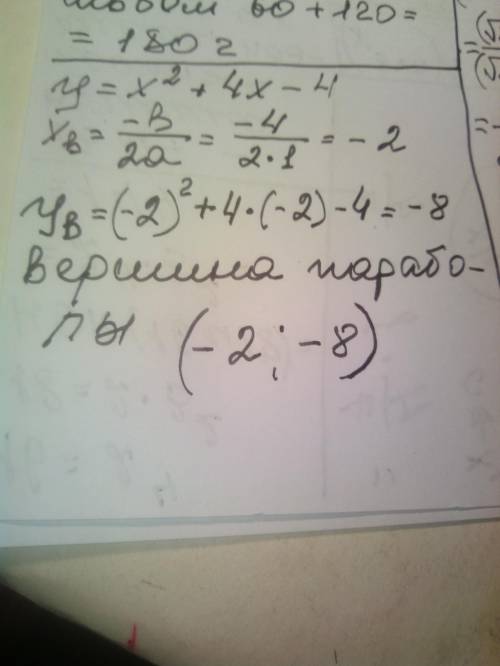 60 + 120 =
= 180 г
y = x² + 4x - 4
xв = -в/2a = -4/2•1 = - 2
yв = (-2)² + 4•(-2) - 4 = -8
Вершина парабо-
лы (-2; -8)